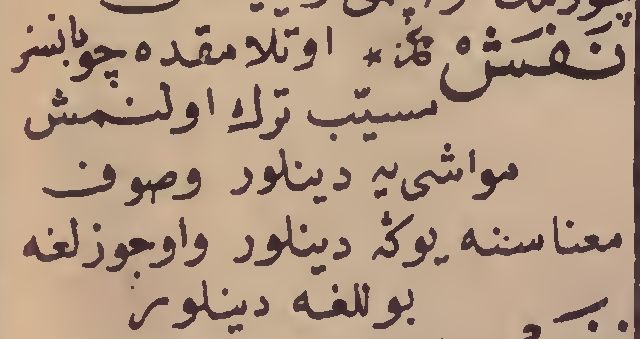 نَفَش اوتلامقده چوبانسز
مسيّب ترك اولنمش
مواشى‌يه دينلور وصوف
معناسننه يوكه دينلور واوجوزلغه
بوللغه دينلور